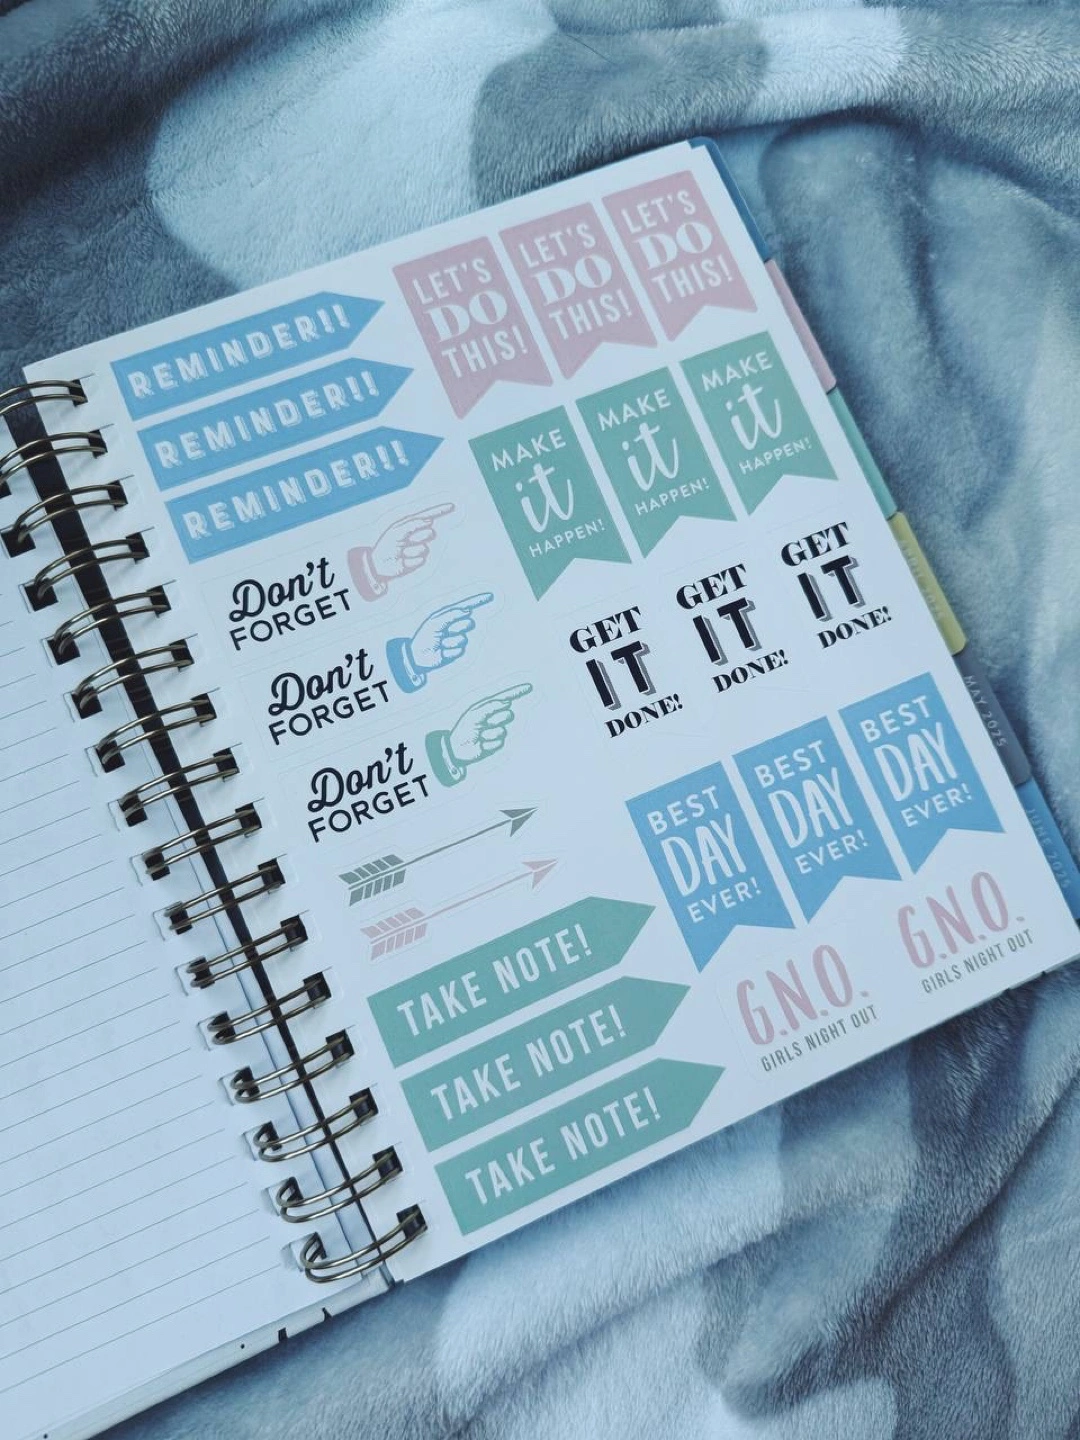 REMINDER!!
REMINDER!!
REMINDER!!
LET'S
DO
THIS!
LET'S
DO
THIS!
LET'S
DO
THIS!
MAKE
it
HAPPEN!
MAKE
it
HAPPEN!
MAKE
it
HAPPEN!
Don't
FORGET
Don't
FORGET
Don't
FORGET
GET
IT
DONE!
GET
IT
DONE!
GET
IT
DONE!
BEST
DAY
EVER!
BEST
DAY
EVER!
BEST
DAY
EVER!
TAKE NOTE!
TAKE NOTE!
TAKE NOTE!
G.N.O.
GIRLS NIGHT OUT
G.N.O.
GIRLS NIGHT OUT
APRIL 2025
MAY 2025
JUNE 2025